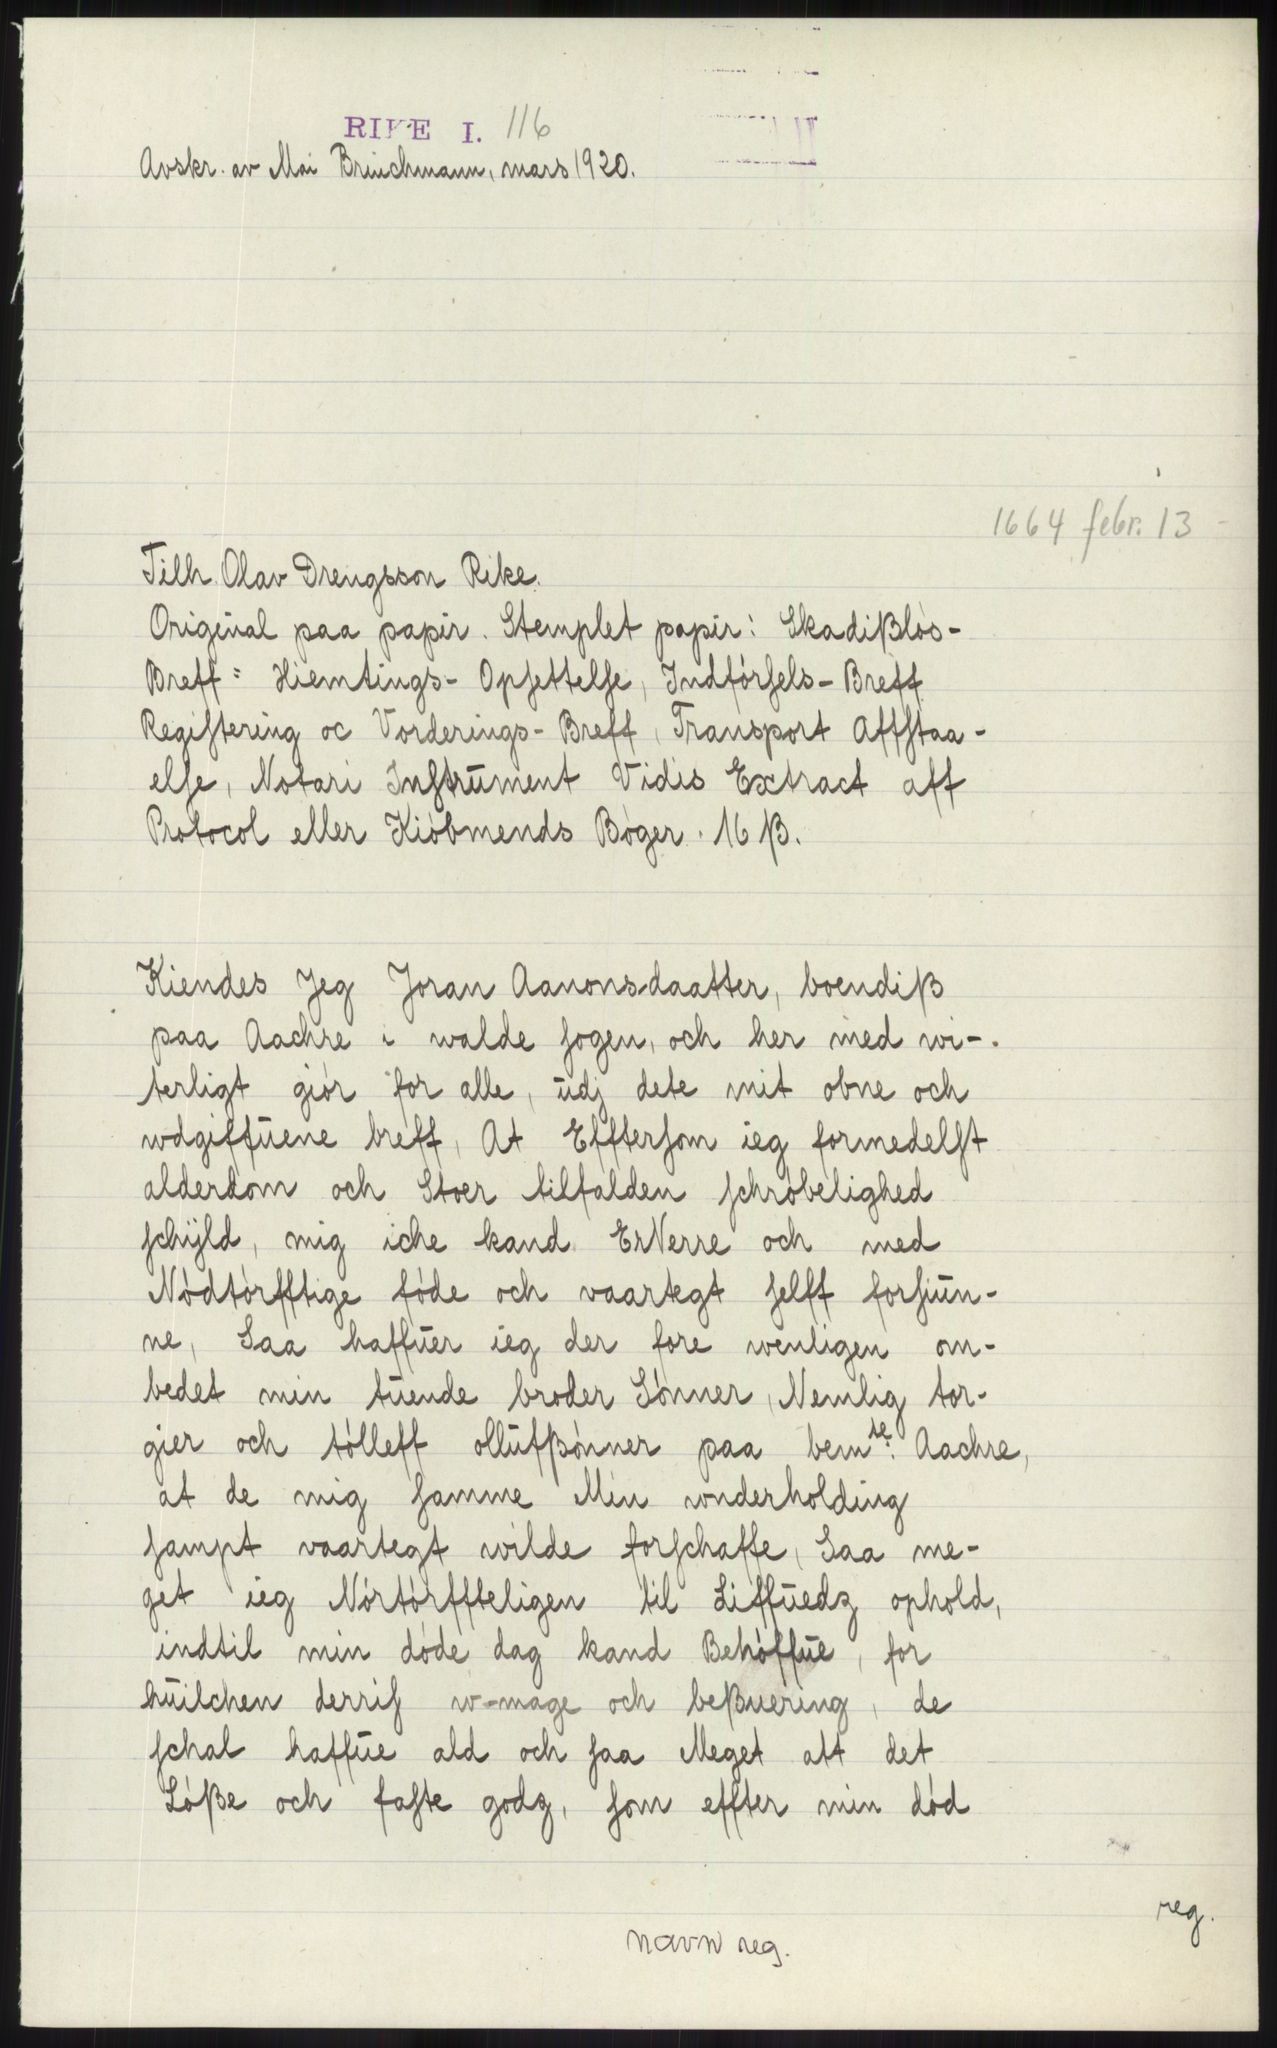 RIKE I. 116
Avskr. av Mai Brinchmann, mars 1920.
1664 febr. 13
Tilh. Olav Drengsson Rike.
Original paa papir. Stemplet papir: Skadißløs-
Breff: Hiemtings- Opſettelſe, Indførſels-Breff
Regiſtering oc Vorderings-Breff, Transport Affſtaa-
elſe, Notari Inſtrument Vidis Extract aff
Protocol eller Kiøbmends Bøger. 16 ß.
Kiendes Jeg Joran Aanonsdaatter, boendiß
paa Aachre i walde ſogen, och her med wi-
terligt giør for alle, udj dete mit obne och
wdgiffuene breff, At Effterſom ieg formedelſt
alderdom och Stoer tilfalden ſchrøbelighed
ſchÿld, mig iche kand ErNerre och med
Nødtørfftige føde och vaartegt ſelff forſiun-
ne, Saa haffuer ieg der fore wenligen om-
bedet min tuende broder Sønner, Nemlig tor-
gier och tølleff ollufßønner paa bemte: Aachre,
at de mig ſamme Min wnderholding
ſampt vaartegt wilde forſchaffe, Saa me-
get ieg Nørtørffteligen til Liffuedz ophold,
indtil min døde dag kand Behøffue, for
huilchen derriſ w-mage och beßuering, de
ſchal haffue ald och ſaa Meget att det
Løße och faſte godz, ſom effter min død
reg.
navn reg.